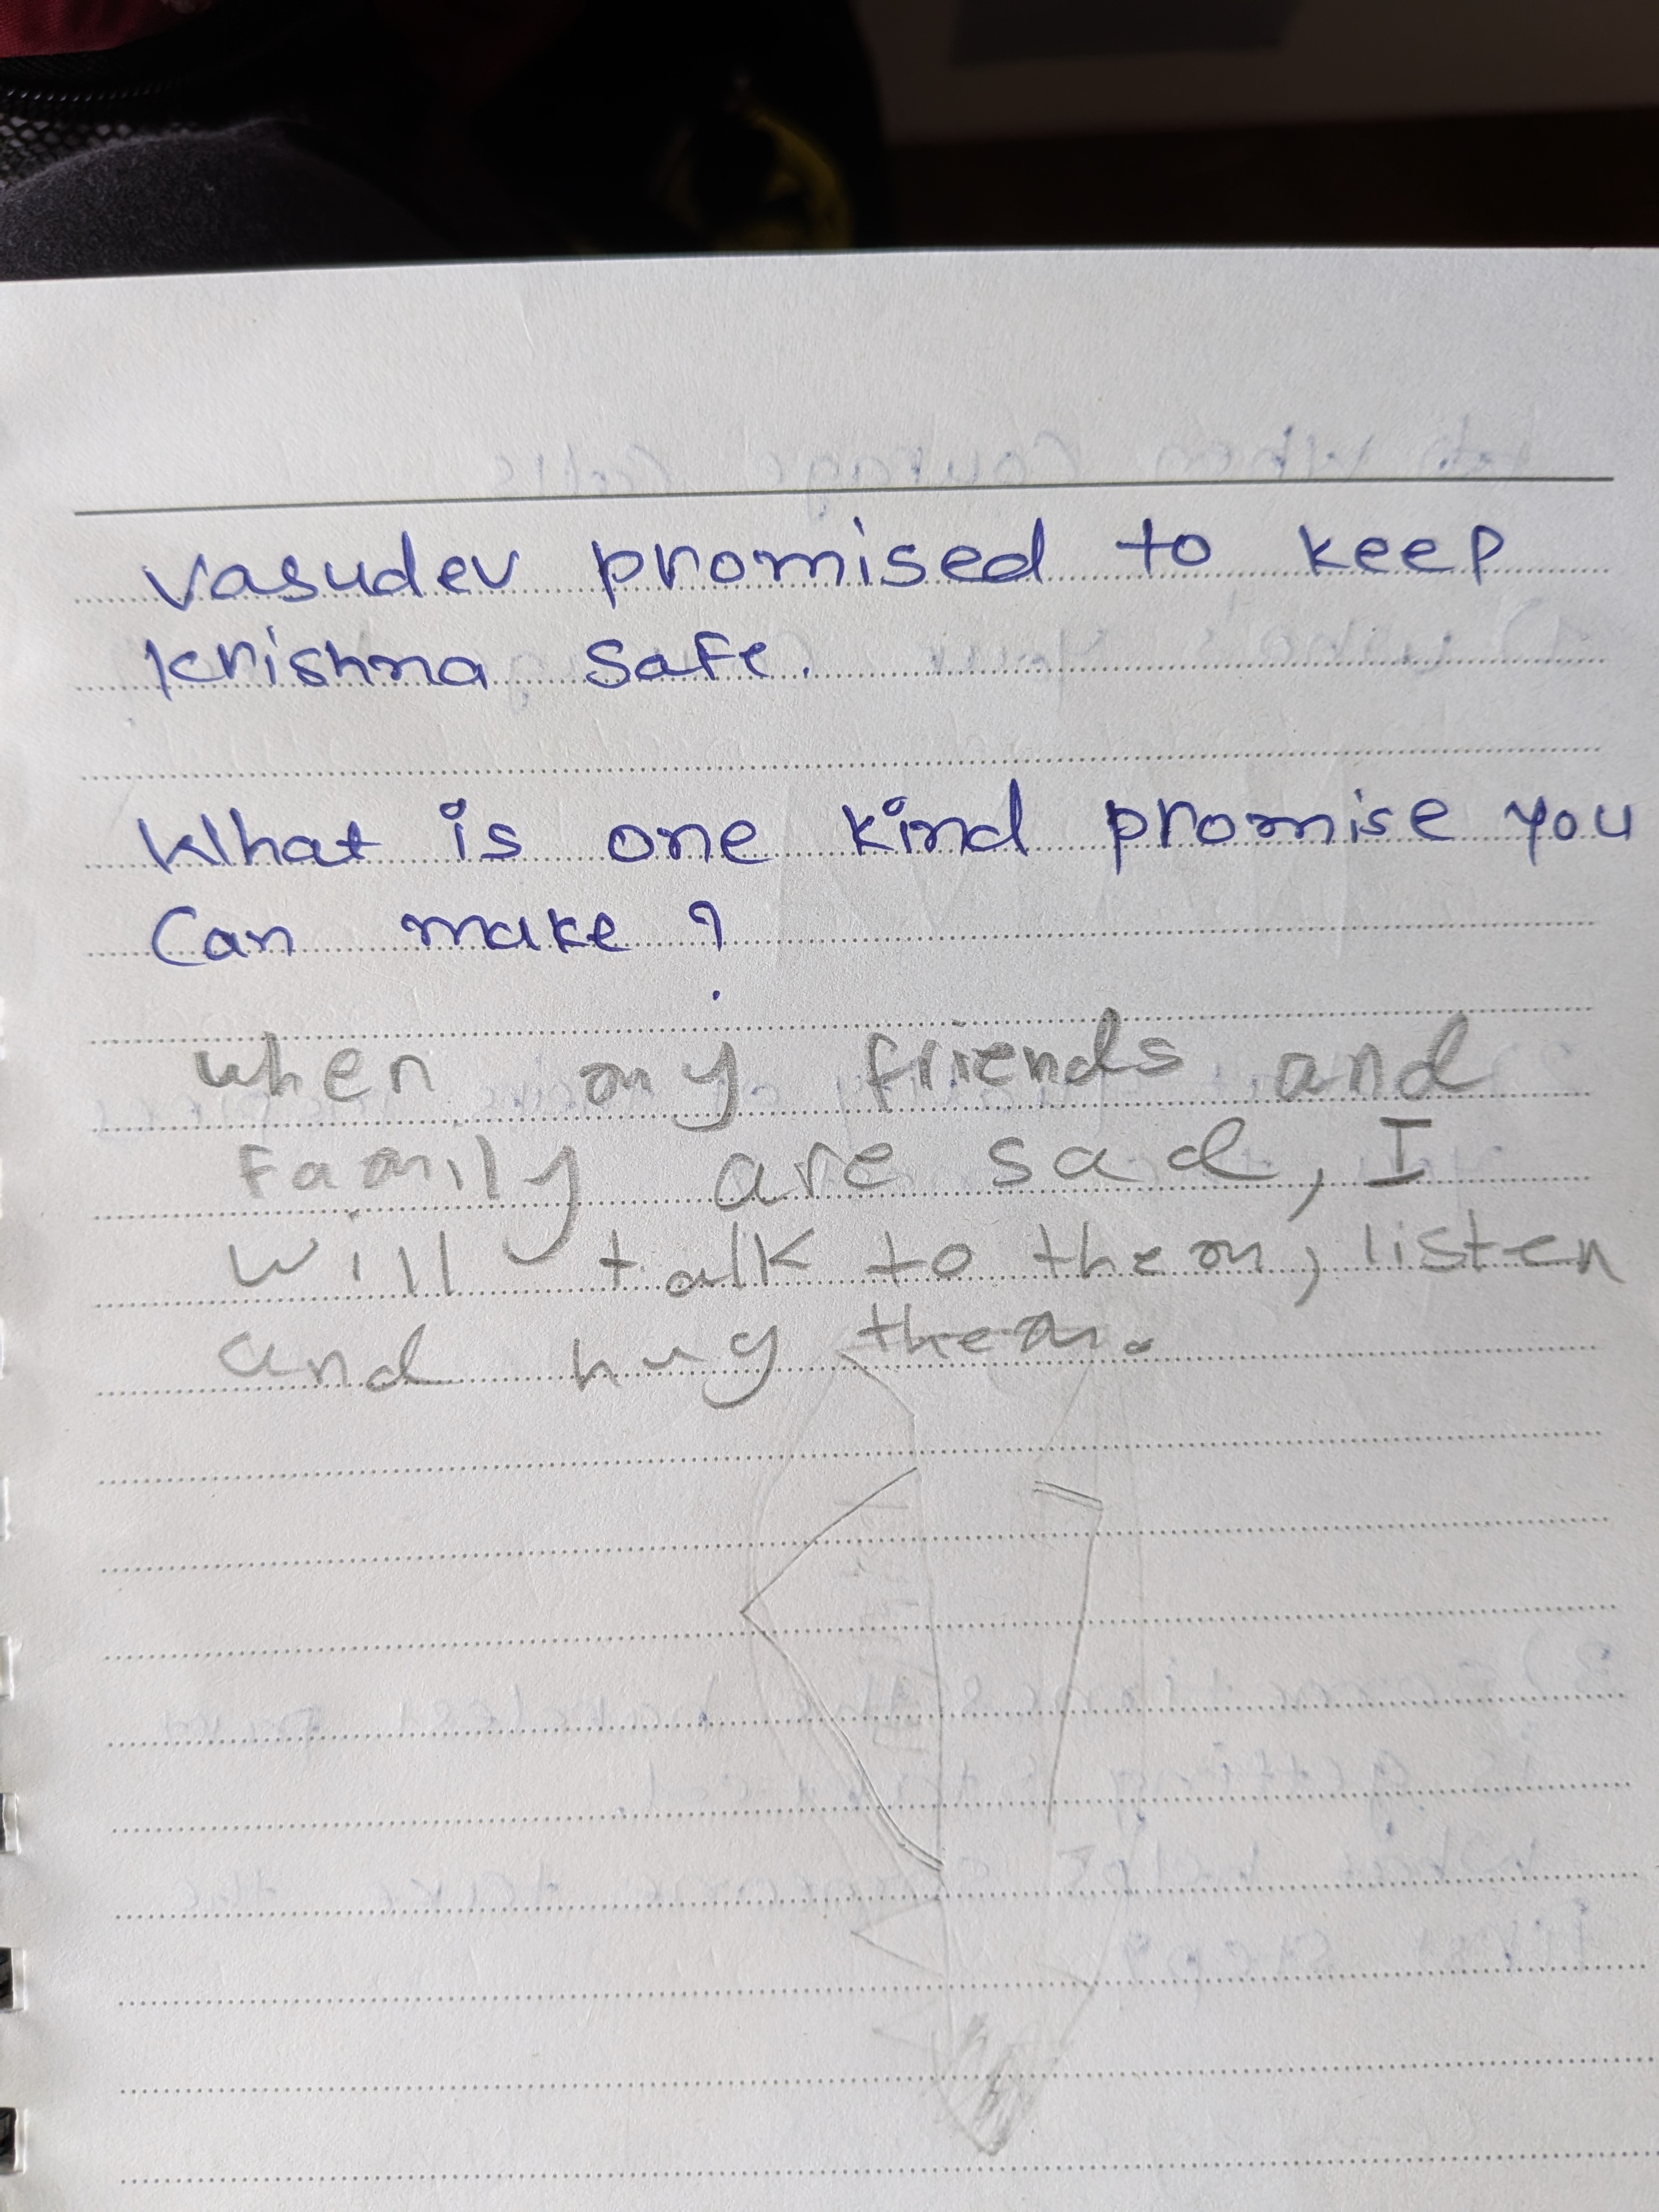 Vasudev promised to keep
Krishna safe.
What is one kind promise you
Can make ?
when my friends and
family are sad, I
will talk to them, listen
and hug them.